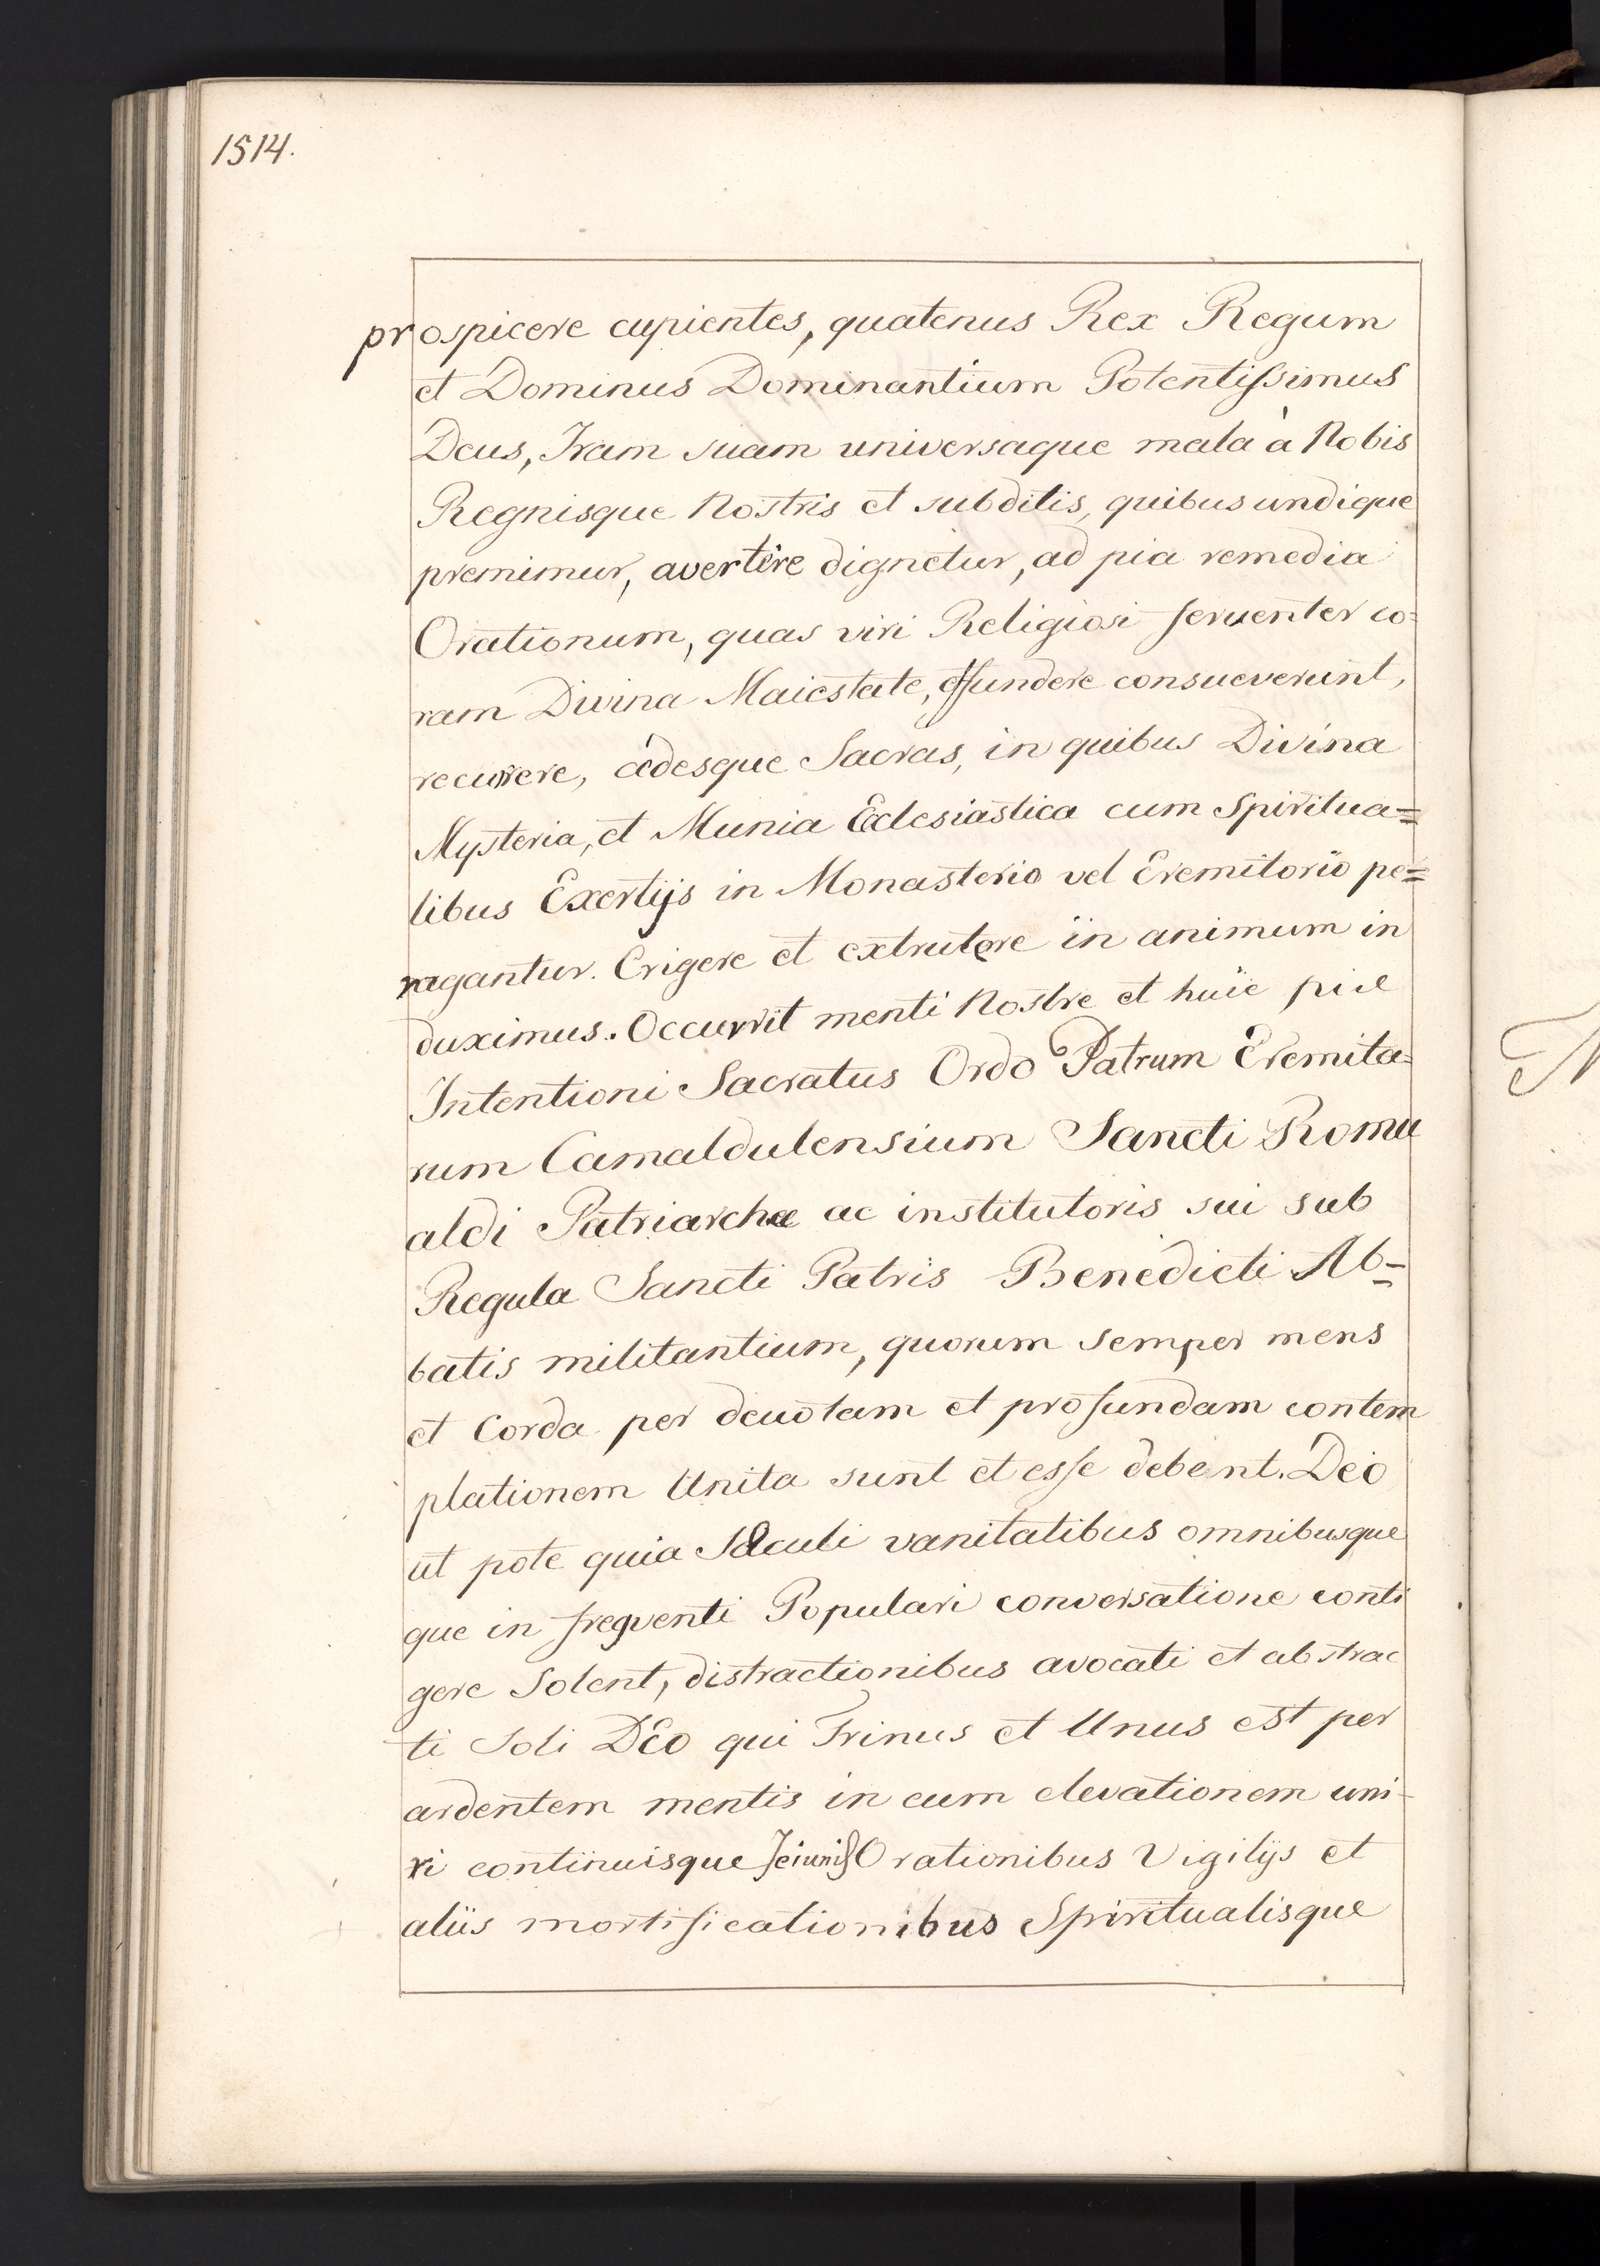 1514.
prospicere cupientes, quatenus Rex Regum
et Dominus Dominantium Potentissimus
Deus, Iram suam universaque mala à Nobis
Regnisque Nostris et subditis, quibus undique
premimur, avertere dignetur, ad pia remedia
Orationum, quas viri Religiosi feruenter co=
ram Divina Maiestate, effundere consueverunt,
recurrere, ædesque Sacras, in quibus Divina
Mysteria, et Munia Ecclesiastica cum Spiritua=
libus Exertijs in Monasterio vel Eremitorio pe=
ragantur. Erigere et extrutere in animum in
duximus. Occurrit menti Nostre et huic piæ
Intentioni Sacratus Ordo Patrum Eremita=
rum Camaldulensium Sancti Romu
aldi Patriarchæ ac institutoris sui sub
Regula Sancti Patris Benedicti Ab=
batis militantium, quorum semper mens
et Corda per deuotam et profundam contem
plationem Unita sunt et esse debent. Deo
ut pote quia Sæculi vanitatibus omnibusque
que in frequenti Populari conversatione conti
gere Solent, distractionibus avocati et abstrac
ti Soli DEo qui Trinus et Unus est per
ardentem mentis in eum elevationem uni-
ri continuisque Jeiunijs Orationibus Vigilijs et
aliis mortificationibus Spiritualisque